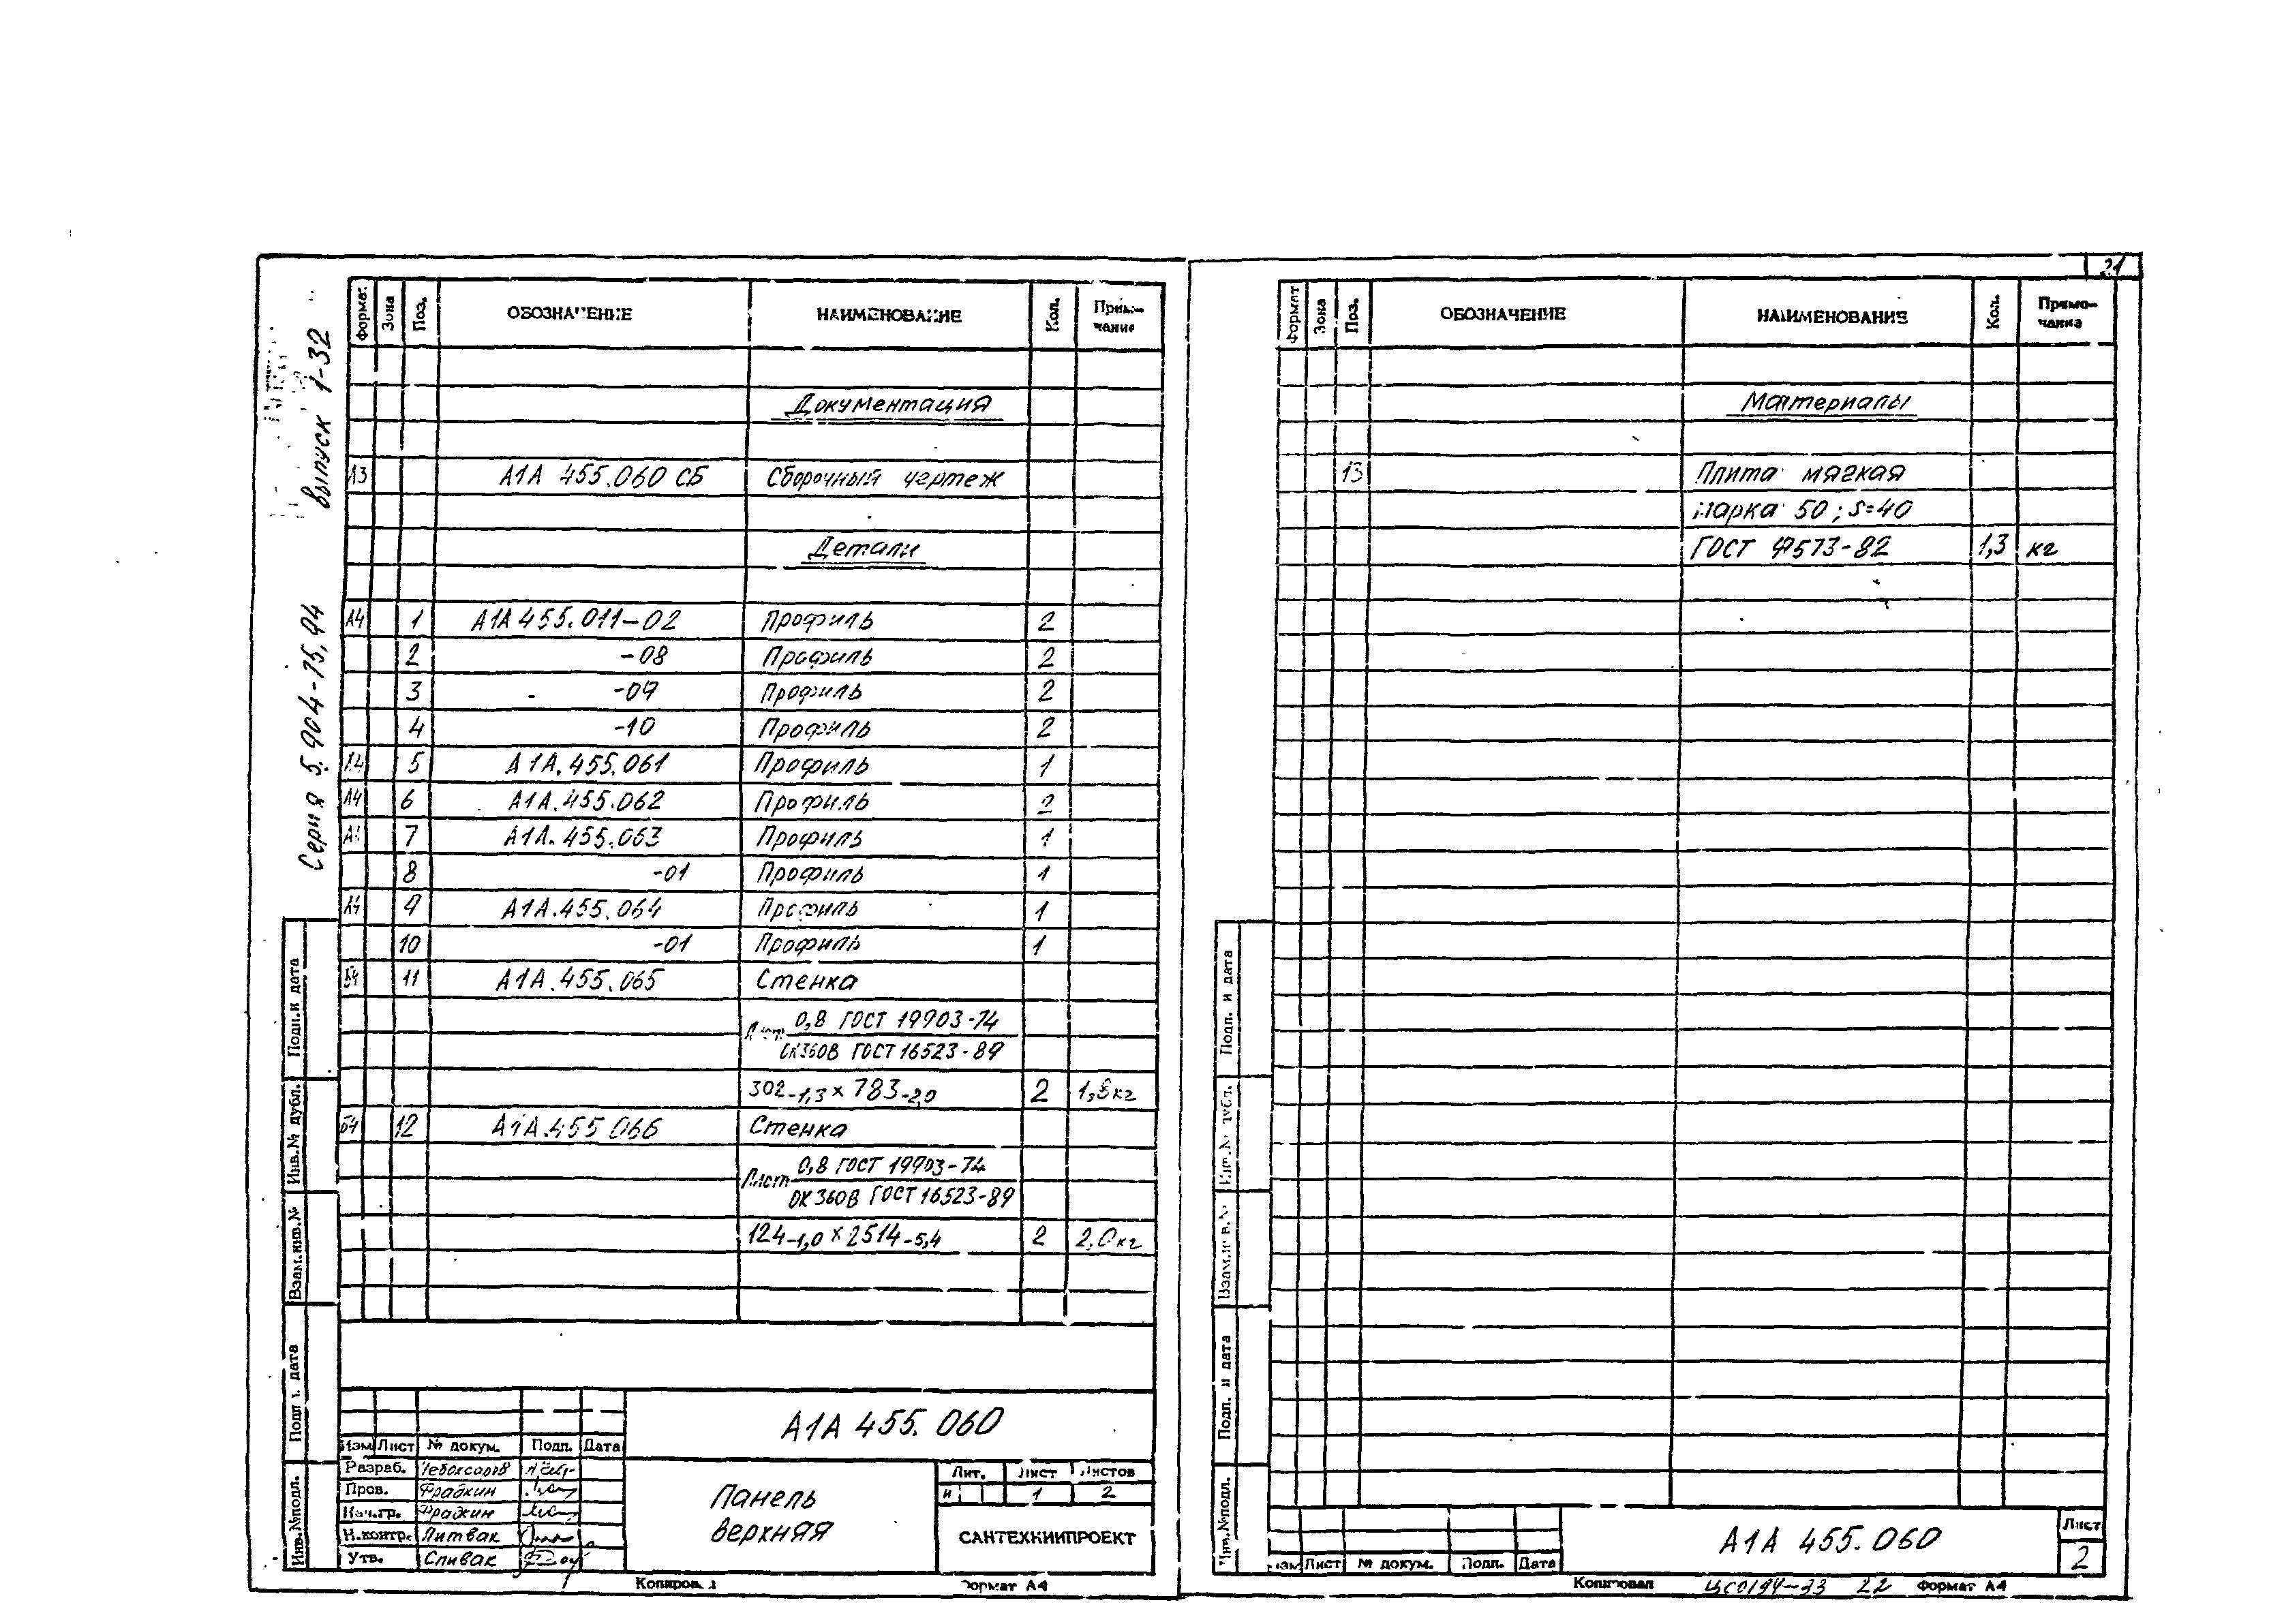 21
Серия 5.904-75.94 выпуск 1-32
Формат Зона Поз. ОБОЗНАЧЕНИЕ НАИМЕНОВАНИЕ Кол. Приме-чание
Документация
А3 А1А 455.060 СБ Сборочный чертеж
Детали
А4 1 А1А 455.011-02 Профиль 2
2 -08 Профиль 2
3 -09 Профиль 2
4 -10 Профиль 2
А4 5 А1А.455.061 Профиль 1
А4 6 А1А.455.062 Профиль 2
А4 7 А1А.455.063 Профиль 1
8 -01 Профиль 1
А4 9 А1А.455.064 Профиль 1
10 -01 Профиль 1
БЧ 11 А1А.455.065 Стенка
Лист 0,8 ГОСТ 19903-74
ОК360В ГОСТ 16523-89
302-1,3 х 783-2,0 2 1,8кг
БЧ 12 А1А.455 066 Стенка
Лист 0,8 ГОСТ 19903-74
ОК360В ГОСТ 16523-89
124-1,0 х 2514-5,4 2 2,0кг
Подп.и дата
Инв.№ дубл.
Взам.инв.№
Подп и дата
Инв.№подл.
А1А 455.060
Изм Лист № докум. Подп. Дата
Разраб. Чебоксаров
Пров. Фрадкин
Нач.гр. Фрадкин
Н.контр. Литвак
Утв. Спивак
Панель
верхняя
Лит. Лист Листов
и 1 2
САНТЕХНИИПРОЕКТ
Копировал Формат А4
Формат Зона Поз. ОБОЗНАЧЕНИЕ НАИМЕНОВАНИЕ Кол. Приме-чание
Материалы
13 Плита мягкая
марка 50; S=40
ГОСТ 9573-82 1,3 кг
Подп. и дата
Инв.№ дубл.
Взам.инв.№
Подп. и дата
Инв.№подл.
Изм Лист № докум. Подп. Дата
А1А 455.060
Лист
2
Копировал ЦС0194-33 22 Формат А4